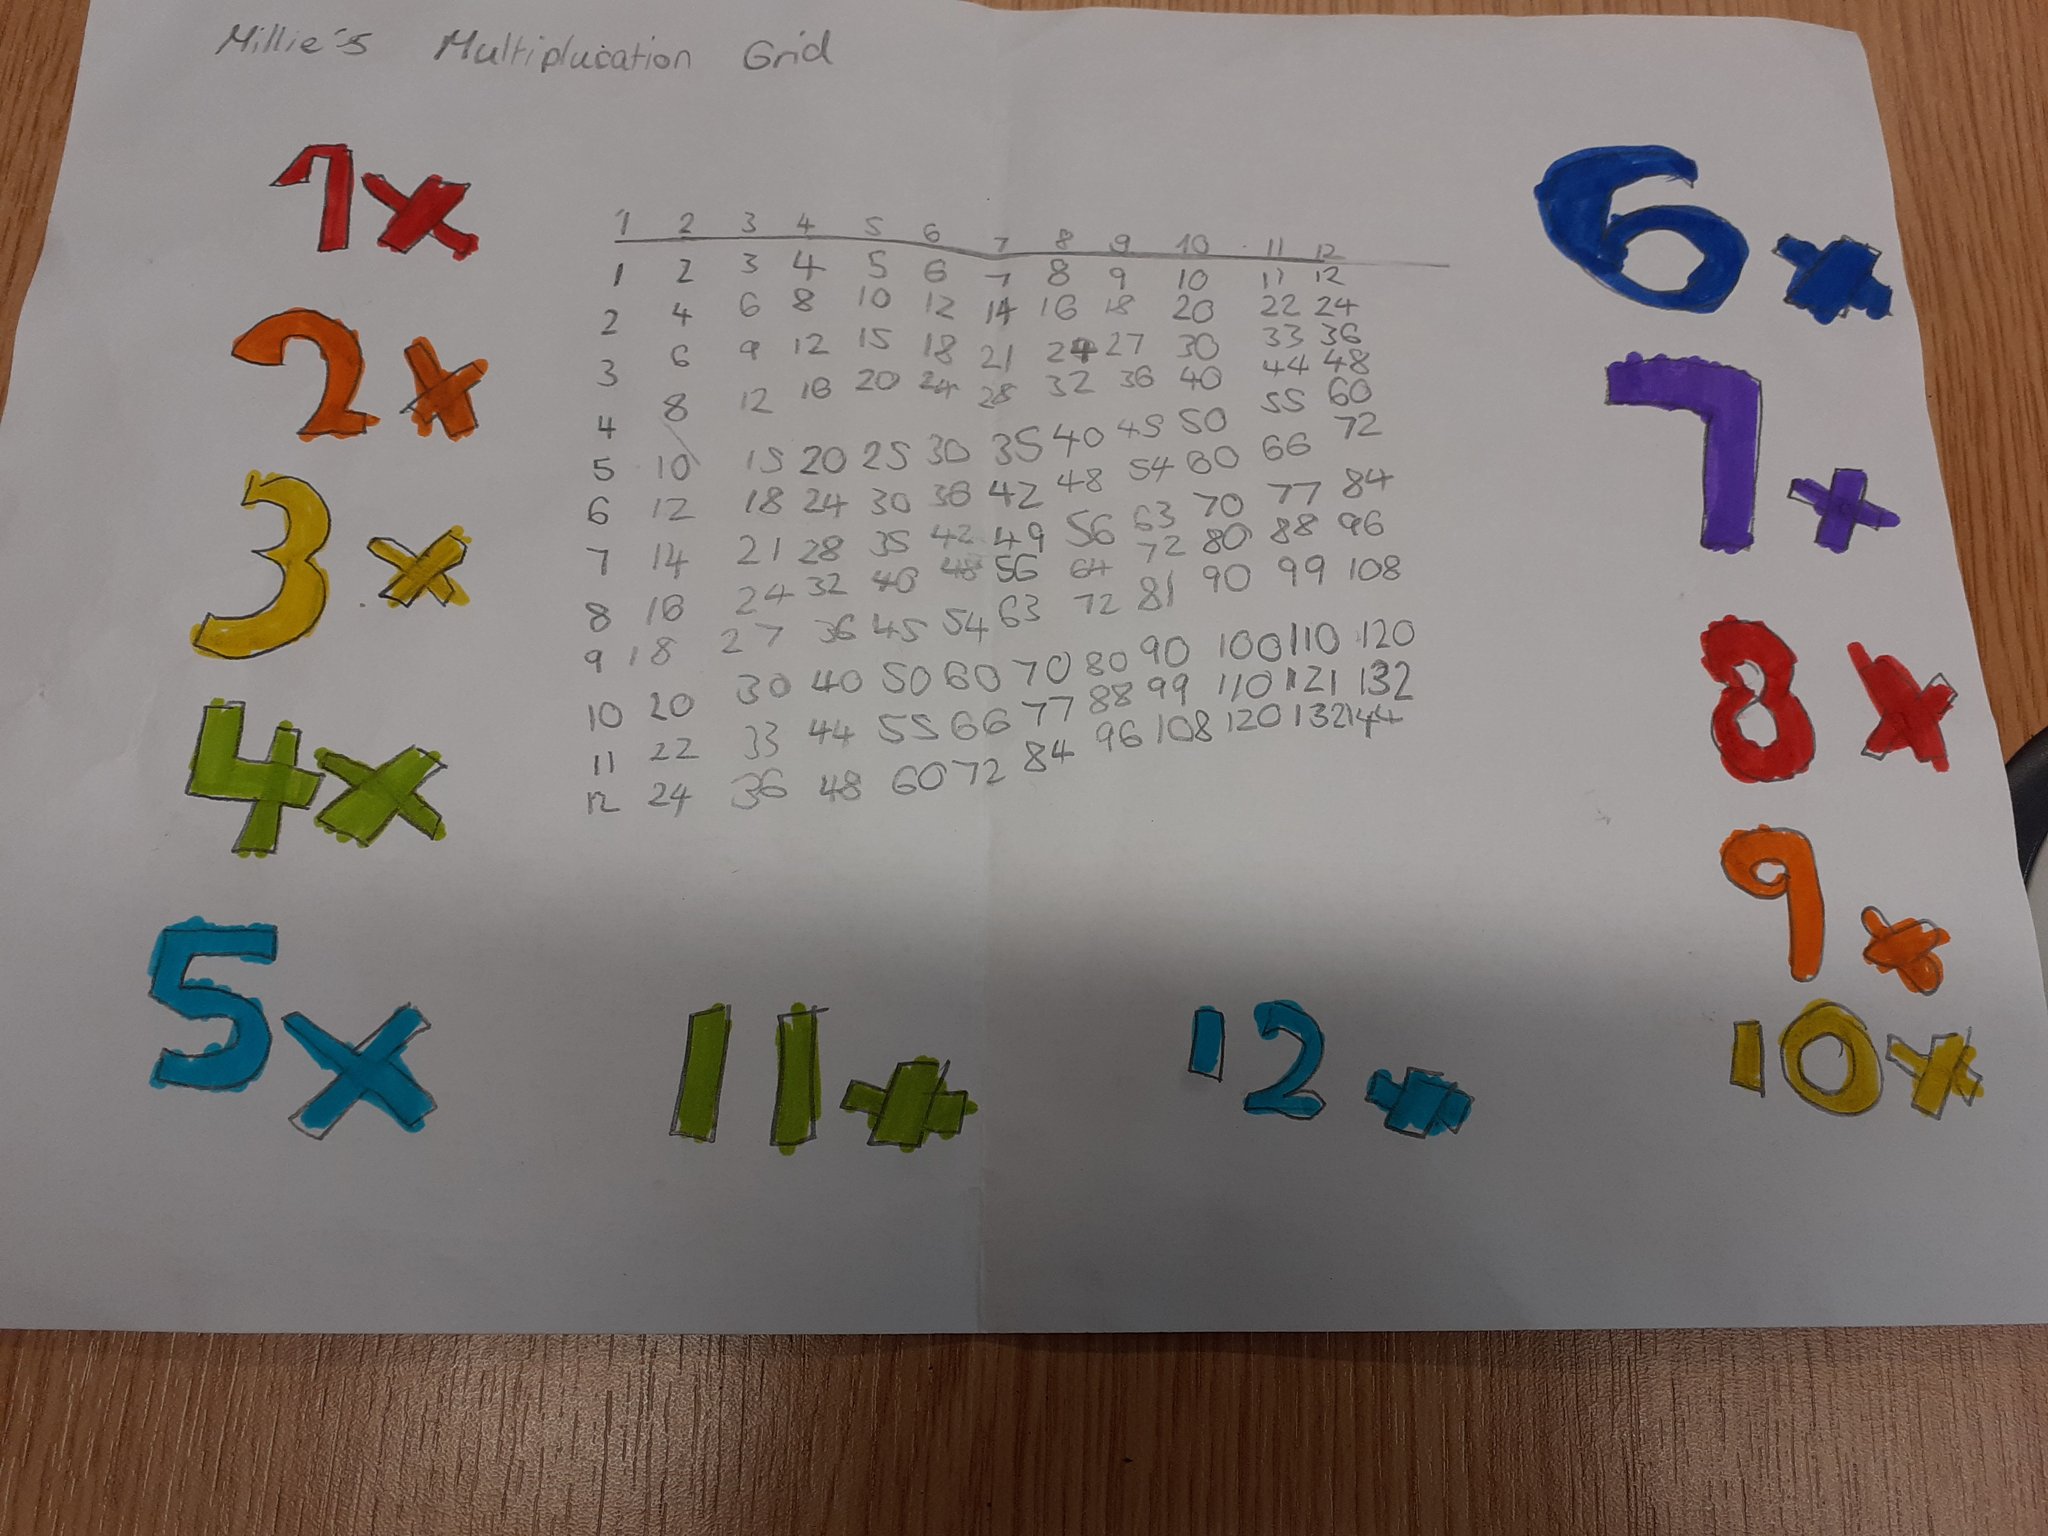 Millie's Multiplucation Grid
1x
2x
3x
4x
5x
1 2 3 4 5 6 7 8 9 10 11 12
1 2 3 4 5 6 7 8 9 10 11 12
2 4 6 8 10 12 14 16 18 20 22 24
3 6 9 12 15 18 21 24 27 30 33 36
4 8 12 16 20 24 28 32 36 40 44 48
5 10 15 20 25 30 35 40 45 50 55 60
6 12 18 24 30 36 42 48 54 60 66 72
7 14 21 28 35 42 49 56 63 70 77 84
8 16 24 32 40 48 56 64 72 80 88 96
9 18 27 36 45 54 63 72 81 90 99 108
10 20 30 40 50 60 70 80 90 100 110 120
11 22 33 44 55 66 77 88 99 110 121 132
12 24 36 48 60 72 84 96 108 120 132 144
6x
7x
8x
9x
10x
11x
12x